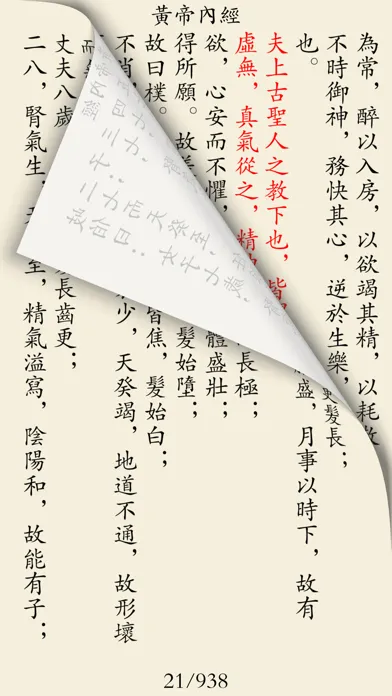 黃帝內經
為常，醉以入房，以欲竭其精，以耗
不時御神，務快其心，逆於生樂，
更髮長；
也。
盛，月事以時下，故有
夫上古聖人之教下也，皆
虛無，真氣從之，精
長極；
欲，心安而不懼，
體盛壯；
得所願。故
髮始墮；
故曰樸。
皆焦，髮始白；
不肖
少，天癸竭，地道不通，故形壞
丈夫八歲
長齒更；
二八，腎氣生，
至，精氣溢寫，陰陽和，故能有子；
21/938